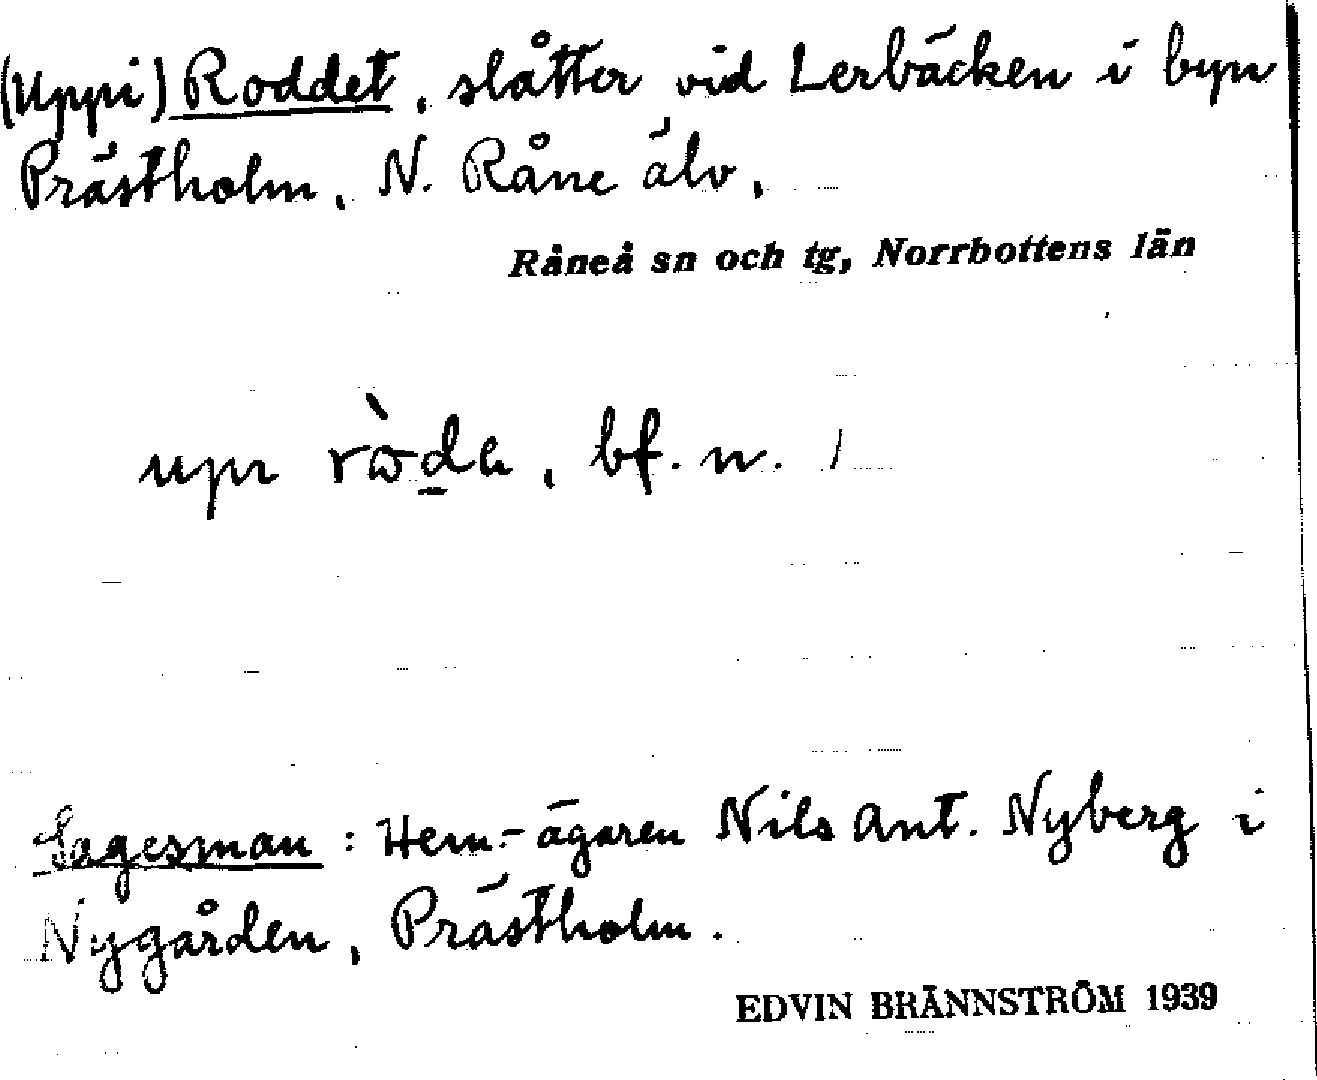 (Uppi) Roddet, slåtter vid Lerbäcken i byn
Prästholm, N. Råne älv,
Råneå sn och tg, Norrbottens län
bf. n.
Sagesman: Hem.-ägaren Nils Ant. Nyberg i
Nygården, Prästholm.
EDVIN BRÄNNSTRÖM 1939